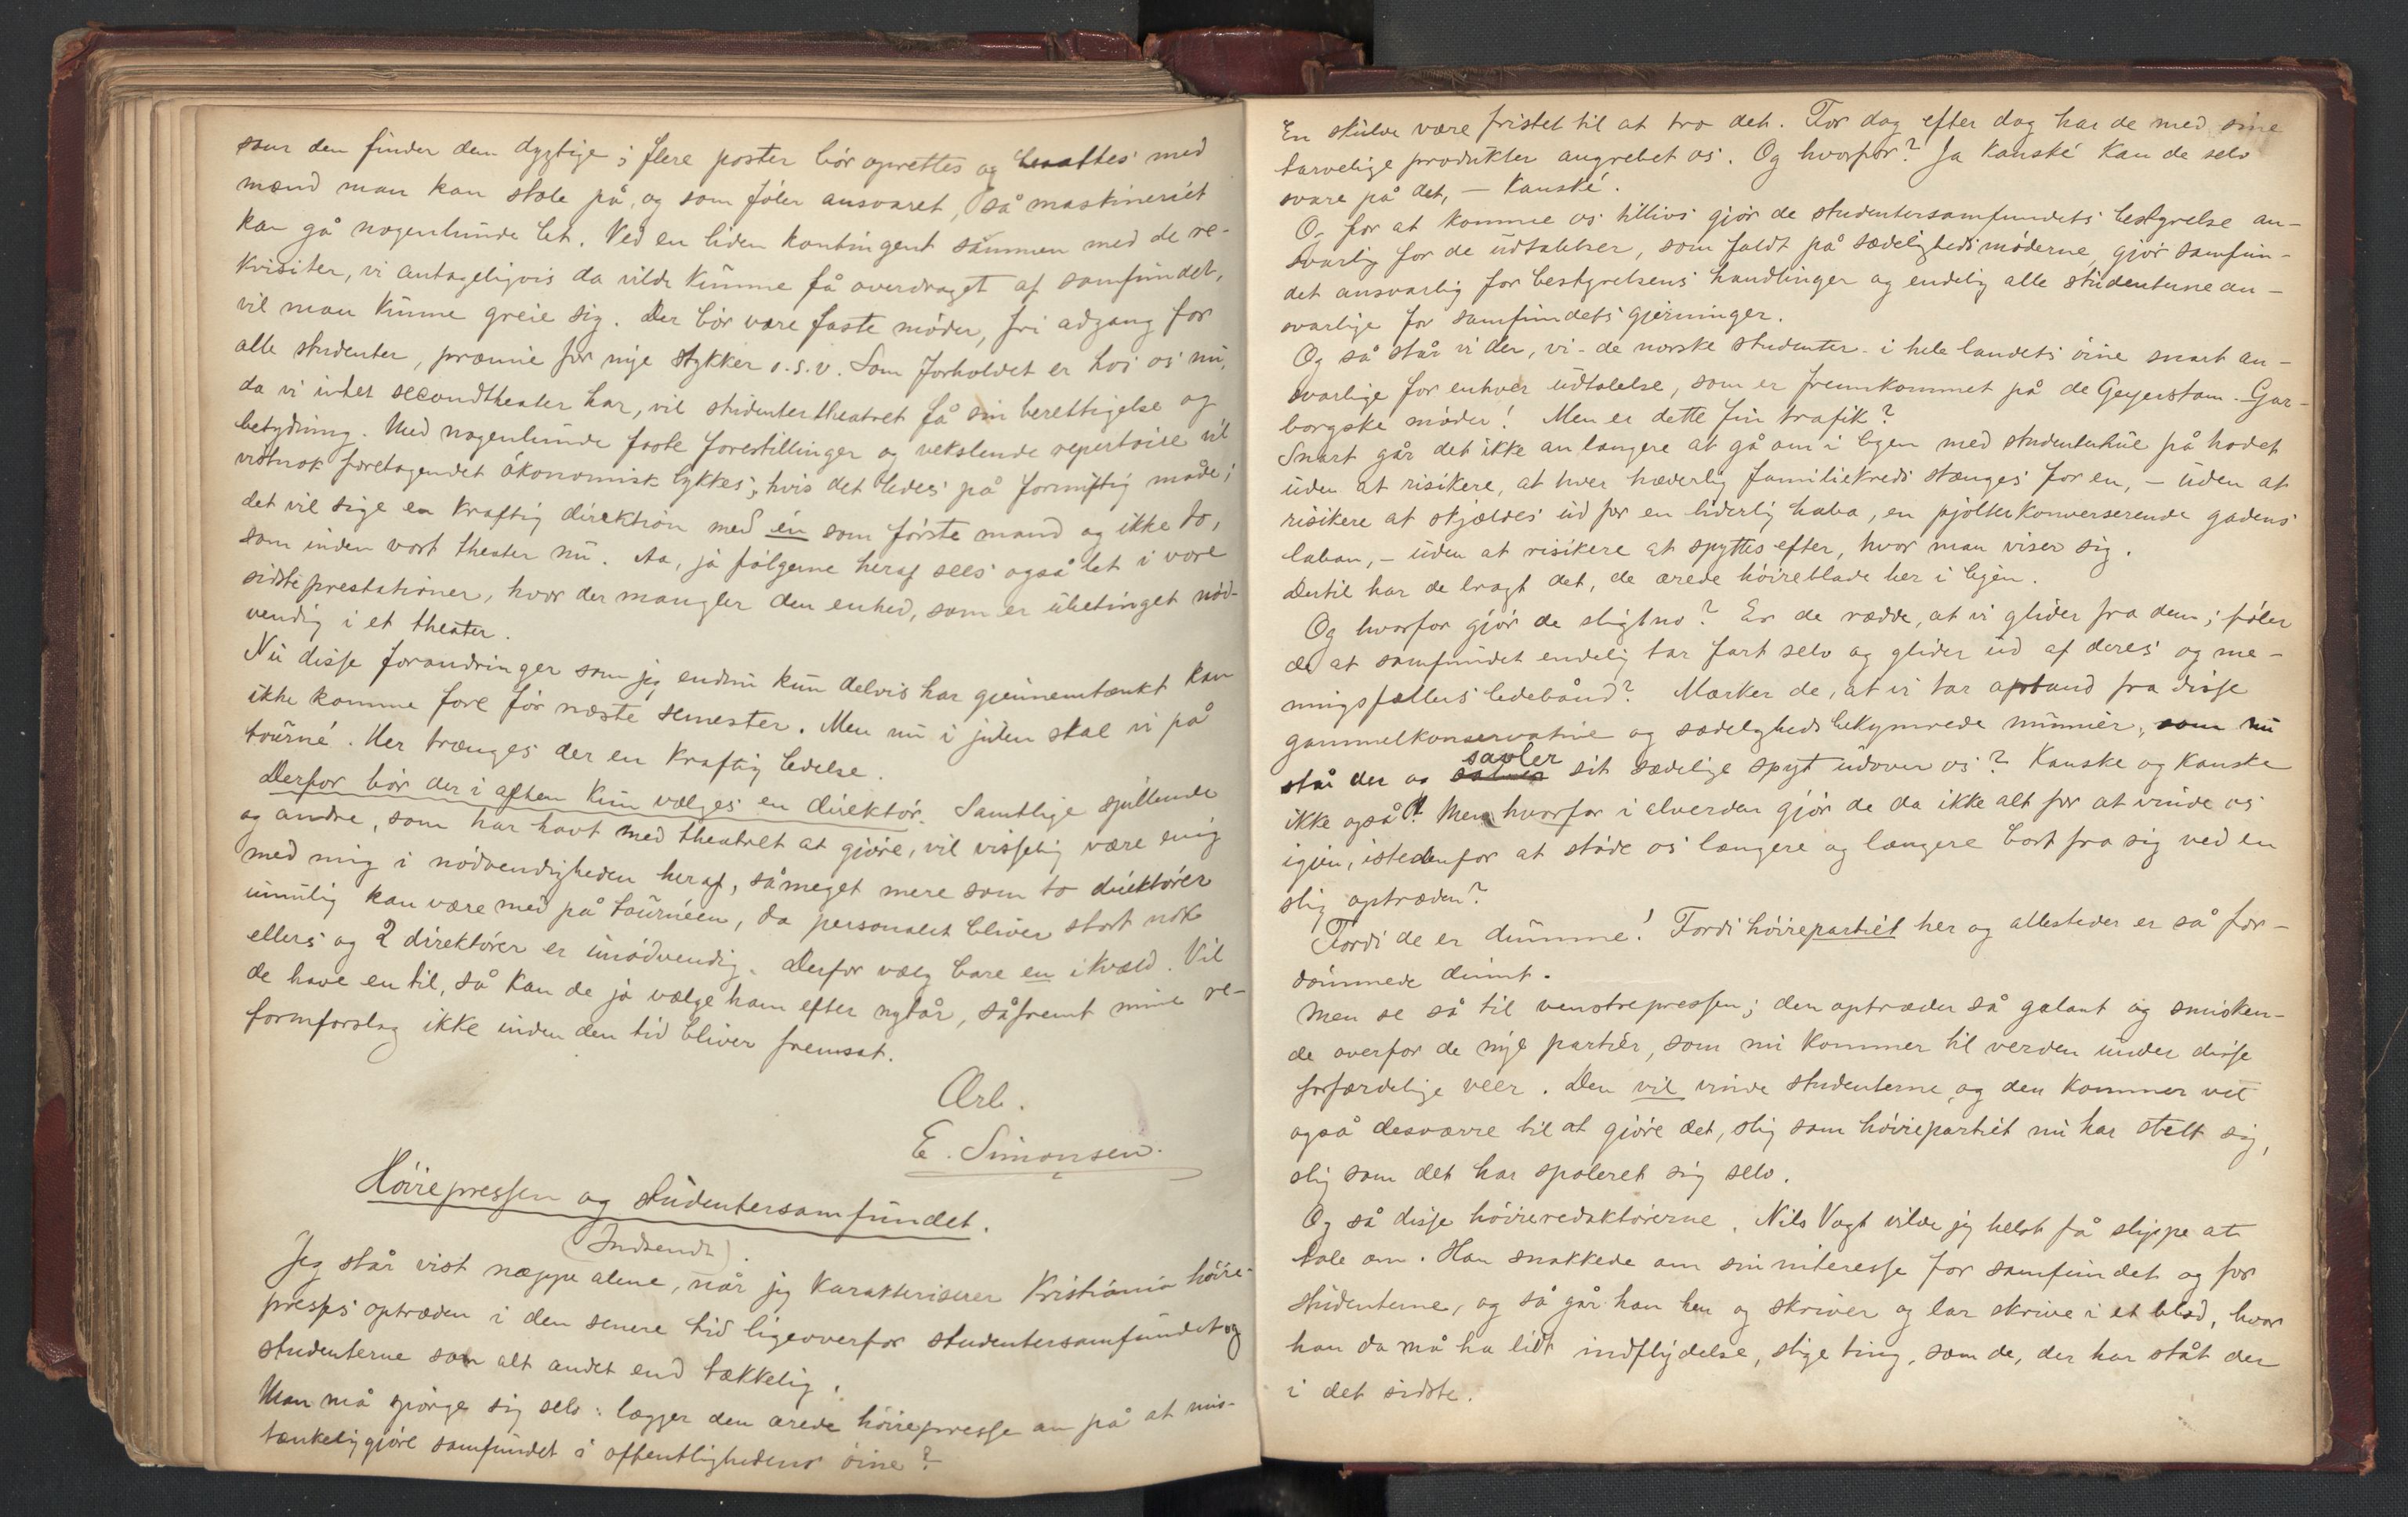 som den finder den dygtige; flere poster bör oprettes og besættes med
mænd man kan stole på, og som föler ansvaret, så maskineriet
kan gå nogenlunde let. Ved en liden kontingent sammen med de re-
kvisiter, vi antageligvis da vilde kunne få overdraget af samfundet,
vil man kunne greie sig. Der bör være faste möder, fri adgang for
alle studenter, præmie for nye stykker o.s.v. Som forholdet er hos os nu,
da vi intet secondtheater har, vil studentertheatret få sin berettigelse og
betydning. Med nogenlunde faste forestillinger og vekslende repertoire vil
vistnok foretagendet ökonomisk lykkes, hvis det ledes på fornuftig måde;
det vil sige en kraftig direktion med én som förste mand og ikke to,
som inden vort theater nu. Aa, ja fölgerne heraf sees også let i vore
sidste prestationer, hvor der mangler den enhed, som er ubetinget nöd-
vendig i et theater.
Nu disse forandringer som jeg endnu kun delvis har gjennemtænkt kan
ikke komme fore för næste semester. Men nu i julen skal vi på
tourné. Her trænges der en kraftig ledelse.
Derfor bör der i aften kun vælges en direktör. Samtlige spillende
og andre, som har havt med theatret at gjöre, vil visselig være enig
med mig i nödvendigheden heraf, såmeget mere som to direktörer
umulig kan være med på tournéen, da personalet bliver stort nok
ellers og 2 direktörer er unödvendig. Derfor vælg bare en ikvæld. Vil
de have en til, så kan de jo vælge ham efter nytår, såfremt mine re-
formforslag ikke inden den tid bliver fremsat.
Ærb.
E. Simonsen.
Höirepressen og studentersamfundet.
(Indsendt).
Jeg står vist neppe alene, når jeg karakteriserer Kristiania höire-
presses optræden i den senere tid ligeoverfor studentersamfundet og
studenterne som alt andet end tækkelig.
Man må spörge sig selv: lægger den ærede höirepresse an på at mis-
tænkeliggjöre samfundet i offentlighedens öine?
En skulde være fristet til at tro det. For dag efter dag har de med sine
tarvelige produkter angrebet os. Og hvorfor? Ja kanské kan de selv
svare på det, – kanské.
Og for at komme os tillivs gjör de studentersamfundets bestyrelse an-
svarlig for de udtalelser, som faldt på sædelighedsmöderne, gjör samfun-
det ansvarlig for bestyrelsens handlinger og endelig alle studenterne an-
svarlige for samfundets gjerninger.
Og så står vi der, vi - de norske studenter - i hele landets öine snart an-
svarlige for enhver udtalelse, som er fremkommet på de Geyerstam - Gar-
borgske möder! Men er dette fin trafik?
Snart går det ikke an længere at gå om i byen med studenterhue på hodet
uden at risikere, at hver hæderlig familiekreds stænges for en, – uden at
risikere at skjældes ud for en liderlig laban, en pjolterkonverserende gadens
laban, – uden at risikere at spyttes efter, hvor man viser sig.
Dertil har de bragt det, de ærede höireblade her i byen.
Og hvorfor gjör de sligt no? Er de rædde, at vi glider fra dem; föler
de at samfundet endelig tar fart selv og glider ud af deres og me-
ningsfællers ledebånd? Mærker de, at vi tar afstand fra disse
gammelkonservative og sædelighedsbekymrede mumier, som nu
står der og savler sit sædelige spyt udover os? Kanske og kanske
ikke også! Men hvorfor i alverden gjör de da ikke alt for at vinde os
igjen, istedenfor at støde os længere og længere bort fra sig ved en
slig optræden?
Fordi de er dumme! Fordi höirepartiet her og allesteder er så for-
dömmede dumt.
Men se så til venstrepressen; den optræder så galant og smisken-
de overfor de nye partier, som nu kommer til verden under disse
forfærdelige veer. Den vil vinde studenterne, og den kommer vel
også desværre til at gjöre det, slig som höirepartiet nu har stelt sig,
slig som det har spoleret sig selv.
Og så disse höireredaktörerne. Nils Vogt vilde jeg helst få slippe at
tale om. Han snakkede om sin interesse for samfundet og for
studenterne, og så går han hen og skriver og lar skrive i et blad, hvor
han da må ha lidt indflydelse, slige ting, som de, der har ståt der
i det sidste.